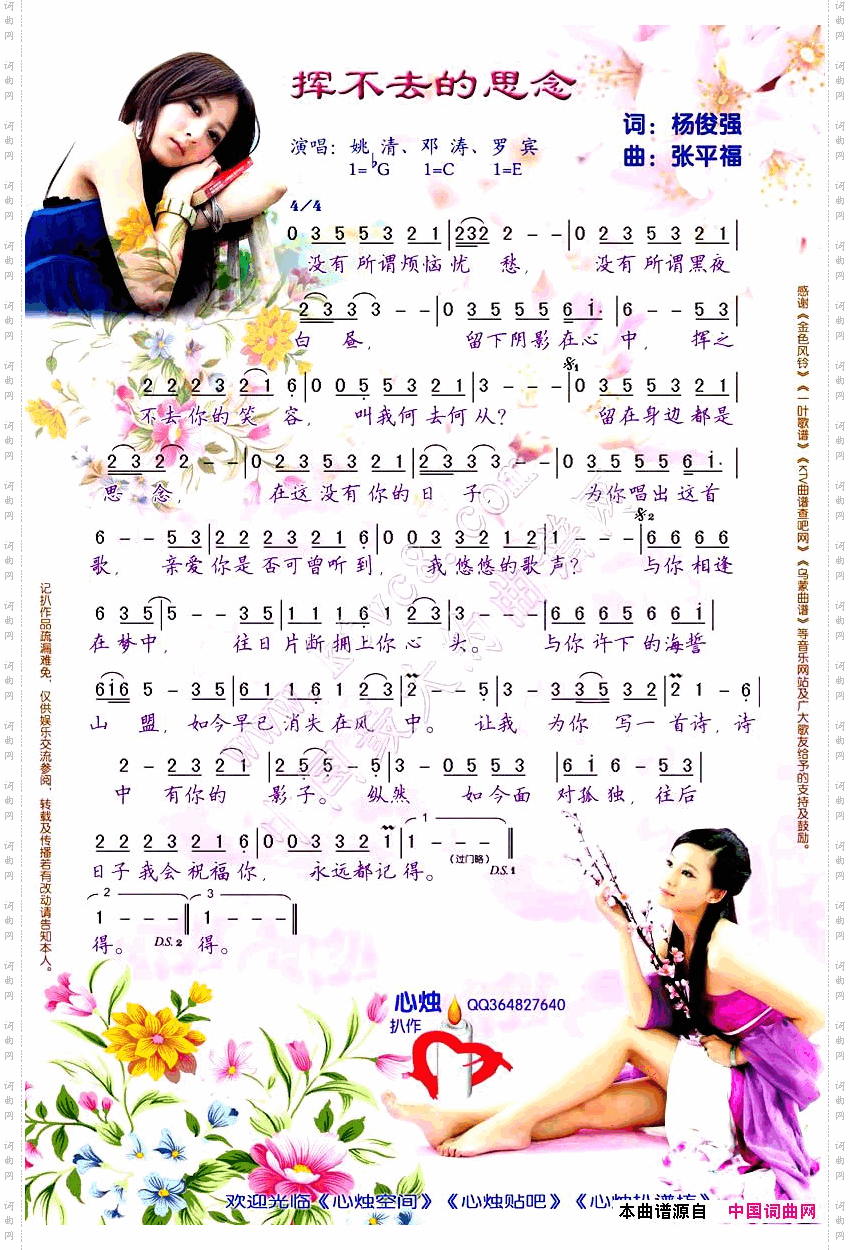 挥不去的思念
词：杨俊强
曲：张平福
演唱：姚 清、邓 涛、罗 宾
1=♭G 1=C 1=E
4/4
0 3 5 5 3 2 1 | 232 2 - - | 0 2 3 5 3 2 1 |
没有所谓烦恼忧 愁， 没有所谓黑夜
2 3 3 3 - - | 0 3 5 5 5 6 i· | 6 - - 5 3 |
白 昼， 留下阴影在心 中， 挥之
2 2 2 3 2 1 6 | 0 0 5 5 3 2 1 | 3 - - - | 0 3 5 5 3 2 1 |
不去你的笑 容， 叫我何去何从？ 留在身边都是
2 3 2 2 - - | 0 2 3 5 3 2 1 | 2 3 3 3 - - | 0 3 5 5 5 6 i· |
思 念， 在这没有你的日 子， 为你唱出这首
6 - - 5 3 | 2 2 2 3 2 1 6 | 0 0 3 3 2 1 2 | 1 - - - | 6 6 6 6
歌， 亲爱你是否可曾听到， 我悠悠的歌声？ 与你相逢
6 3 5 | 5 - - 3 5 | 1 1 1 6 1 2 3 | 3 - - - | 6 6 6 5 6 6 i |
在梦中， 往日片断拥上你心 头。 与你许下的海誓
6i6 5 - 3 5 | 6 1 1 6 1 2 3 | 2 - - 5 | 3 - 3 3 5 3 2 | 2 1 - 6 |
山 盟，如今早已消失在风 中。 让我 为你 写一首诗，诗
2 - 2 3 2 1 | 2 5 5 - 5 | 3 - 0 5 5 3 | 6 i 6 - 5 3 |
中 有你的 影子。 纵然 如今面 对孤独，往后
2 2 2 3 2 1 6 | 0 0 3 3 2 1 | 1 - - - ‖
1
（过门略） D.S.1
日子我会祝福你， 永远都记得。
2 3
1 - - - ‖ 1 - - - ‖
得。 D.S.2 得。
心烛 QQ364827640
扒作
感谢《金色风铃》《一叶歌谱》《KTV曲谱查吧网》《乌蒙曲谱》等音乐网站及广大歌友给予的支持及鼓励。
记扒作品疏漏难免，仅供娱乐交流参阅，转载及传播若有改动请告知本人。
欢迎光临《心烛空间》《心烛贴吧》
本曲谱源自 中国词曲网